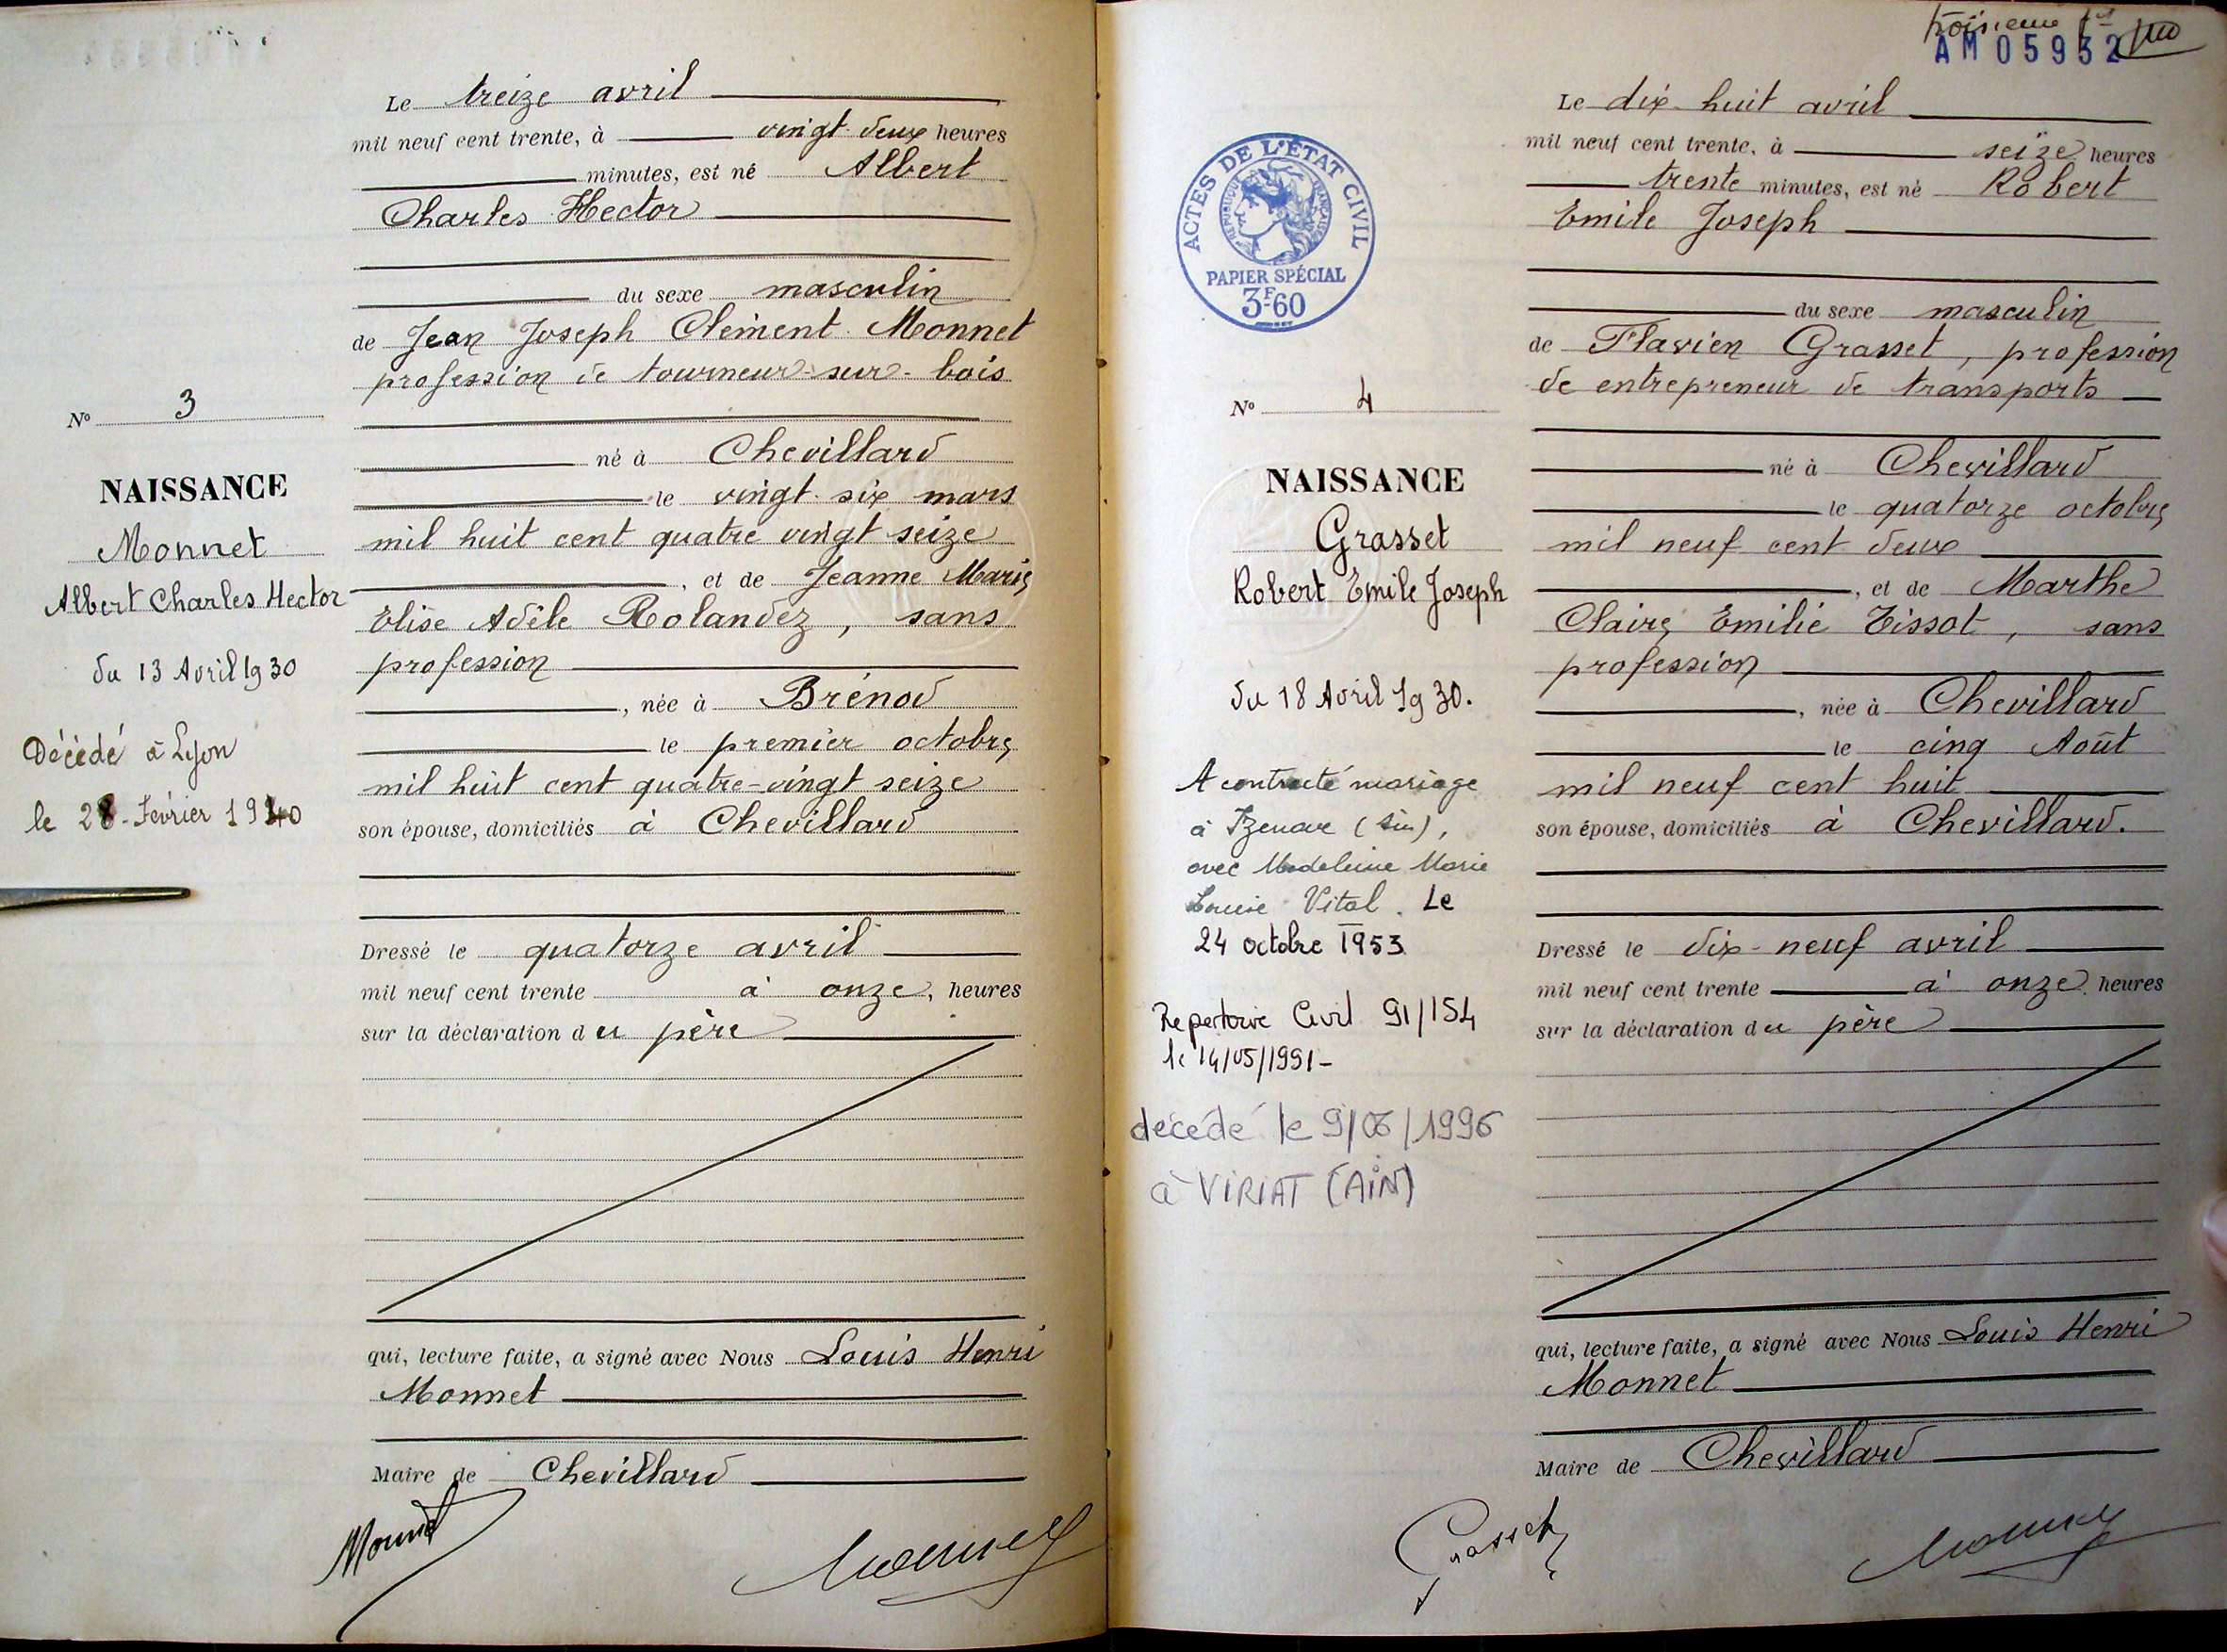 Le treize avril
mil neuf cent trente, à vingt deux heures
minutes, est né Albert
Charles Hector
du sexe masculin
de Jean Joseph Clément Monnet
profession de tourneur-sur-bois
né à Chevillard
le vingt-six mars
mil huit cent quatre vingt seize
, et de Jeanne Marie
Elise Adèle Rolandez, sans
profession
, née à Brénod
le premier octobre
mil huit cent quatre-vingt seize
son épouse, domiciliés à Chevillard
Dressé le quatorze avril
mil neuf cent trente à onze, heures
sur la déclaration du père
qui, lecture faite, a signé avec Nous Louis Henri
Monnet
Maire de Chevillard
Monnet
Monnet
No 3
NAISSANCE
Monnet
Albert Charles Hector
du 13 Avril 1930
Décédé à Lyon
le 28 Février 1940
troisième
AM 05932
ACTES DE L'ÉTAT CIVIL
RÉPUBLIQUE FRANÇAISE
PAPIER SPÉCIAL
3F-60
No 4
NAISSANCE
Grasset
Robert Émile Joseph
du 18 Avril 1930.
A contracté mariage
à Izenave (Ain),
avec Madeleine Marie
Louise Vital. Le
24 octobre 1953
Repertoire Civil 91/154
le 14/05/1991-
décédé le 9/06/1996
à VIRIAT (AIN)
Le dix-huit avril
mil neuf cent trente, à seize heures
trente minutes, est né Robert
Emile Joseph
du sexe masculin
de Flavien Grasset, profession
de entrepreneur de transports
né à Chevillard
le quatorze octobre
mil neuf cent deux
, et de Marthe
Claire Emilie Tissot, sans
profession
, née à Chevillard
le cinq Août
mil neuf cent huit
son épouse, domiciliés à Chevillard.
Dressé le dix-neuf avril
mil neuf cent trente à onze heures
sur la déclaration du père
qui, lecture faite, a signé avec Nous Louis Henri
Monnet
Maire de Chevillard
Grasset
Monnet